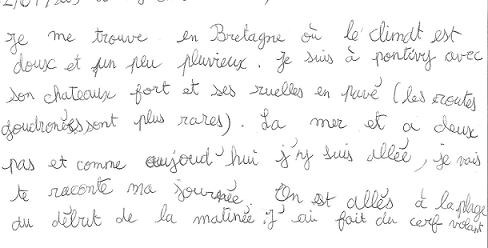 je me trouve en Bretagne où le climat est
doux et un peu pluvieux. Je suis à pontivy avec
son chateaux fort et ses ruelles en pavé (les routes
goudronées sont plus rares). La mer et a deux
pas et comme aujourd'hui j'y suis allée, je vais
te raconte ma journée. On est allés à la plage
au début de la matinée. J'ai fait du cerf volant